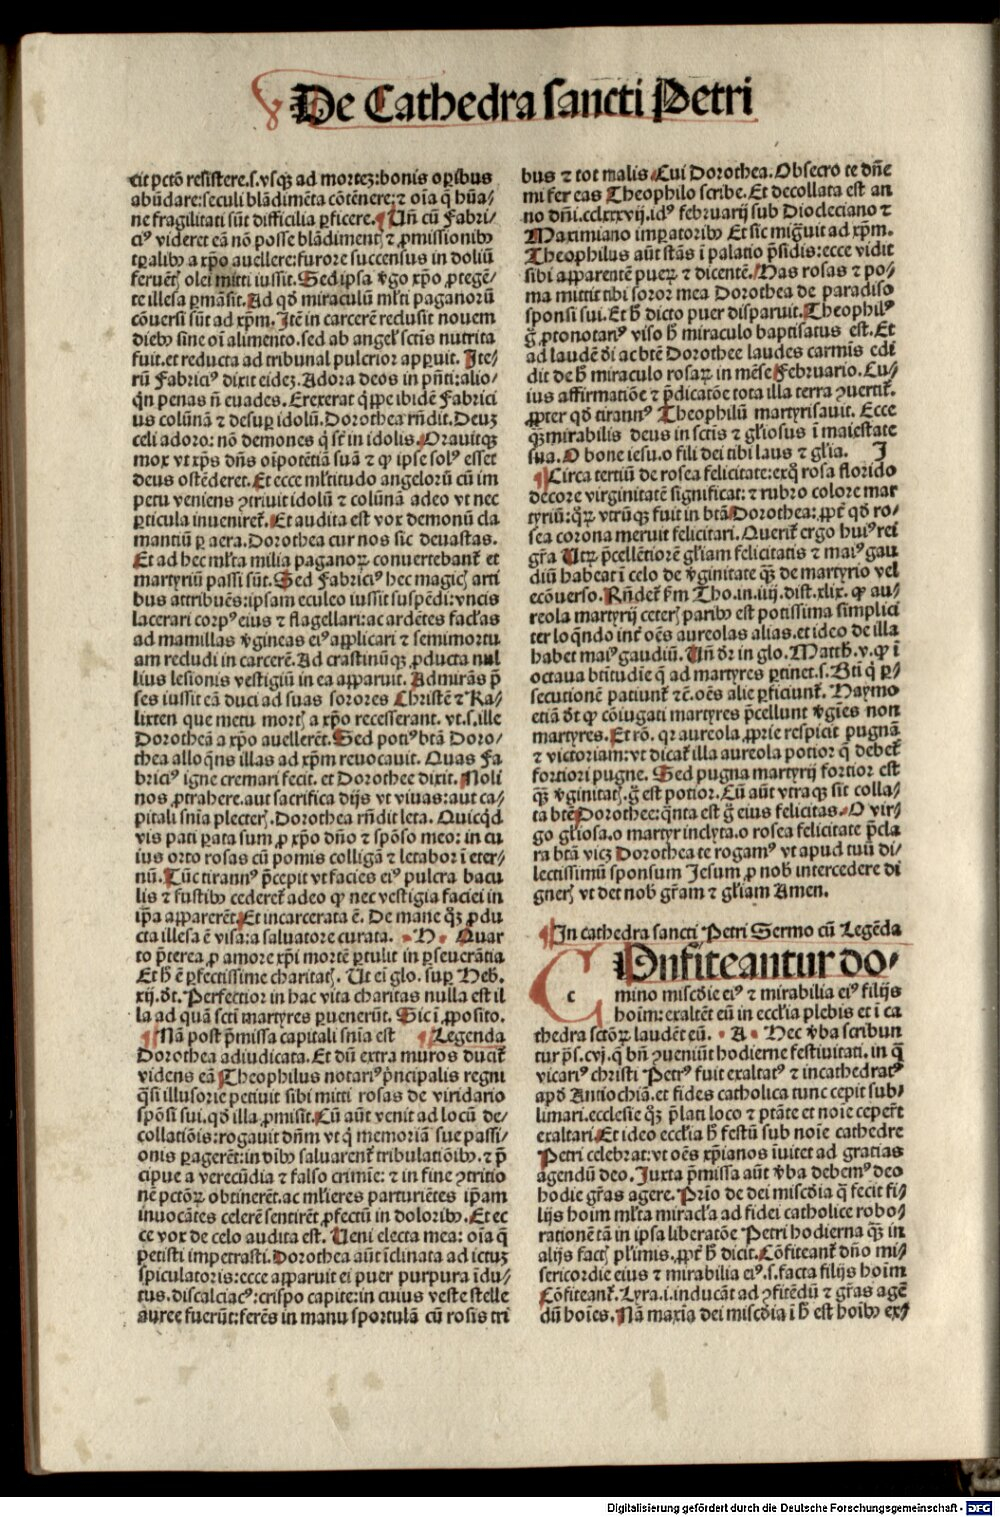 De Cathedra sancti Petri
cit pctõ resistere.s.vsqꝫ ad mortez:bonis oꝑibus
abũdare:seculi blãdimẽta cõtẽnere:⁊ oĩa q̃ hũa-
ne fragilitati sũt difficilia ꝑficere. Uñ cũ Fabri/
ciꝰ videret eã nõ posse blãdimentꝭ ⁊ ꝓmissionibꝰ
tꝑalibꝰ a xp̃o auellere:furore succensus in doliũ
feruẽtꝭ olei mitti iussit. Sed ipsa v̓go xp̃o ꝓtegẽ/
te illesa ꝑmãsit. Ad qđ miraculũ ml̓ti paganorũ
cõuersi sũt ad xp̃m. Itẽ in carcerẽ reclusit nouem
diebꝰ sine oĩ alimento. sed ab angel̓ sctĩs nutrita
fuit. et reducta ad tribunal pulcrior apꝑuit. Ite/
rũ Fabriciꝰ dixit eidez. Adora deos in pñti:alio/
q̃n penas ñ euades. Erexerat q̃ꝑpe ibidẽ Fabrici
us colũnã ⁊ desuꝑ idolũ. Dorothea rñdit. Deuz
celi adoro: nõ demones q̃ st̃ in idolis. Orauitqꝫ
mox vt xp̃s dñs oĩpotẽtiã suã ⁊ ꝙ ipse solꝰ esset
deus ostẽderet. Et ecce ml̓titudo angelorũ cũ im
petu veniens ꝯtriuit idolũ ⁊ colũnã adeo vt nec
ꝑticula inueniret̃. Et audita est vox demonũ cla
mantiũ ꝑ aera. Dorothea cur nos sic deuastas.
Et ad hec ml̓ta milia paganoꝝ conuertebant̃ et
martyriũ passi sũt. Sed Fabriciꝰ hec magicꝭ arti
bus attribuẽs:ipsam eculeo iussit suspẽdi:vncis
lacerari corpꝰ eius ⁊ flagellari:ac ardẽtes facl̓as
ad mamillas v̓gineas eiꝰ applicari ⁊ semimortu
am recludi in carcerẽ. Ad crastinũqꝫ ꝓducta nul
lius lesionis vestigiũ in ea apparuit. Admirãs p̃
ses iussit eã duci ad suas sorores Christẽ ⁊ Ka/
lixten que metu mortꝭ a xp̃o recesserant. vt.s.ille
Dorotheã a xp̃o auellerẽt. Sed potiꝰ btã Doro/
thea alloq̃ns illas ad xp̃m reuocauit. Quas Fa
briciꝰ igne cremari fecit. et Dorothee dixit. Noli
nos ꝓtrahere. aut sacrifica dijs vt viuas:aut ca/
pitali sñia plecterꝭ. Dorothea rñdit leta. Quicq̃d
vis pati parata sum ꝓ xp̃o dño ⁊ spõso meo: in cu
ius orto rosas cũ pomis colligã ⁊ letabor ĩ eter/
nũ. Tũc tirannꝰ p̃cepit vt facies eiꝰ pulcra bacu
lis ⁊ fustibꝰ cederet̃ adeo ꝙ nec vestigia faciei in
ip̃a apparerẽt. Et incarcerata ẽ. De mane qꝫ ꝓdu
cta illesa ẽ visa:a salvatore curata. H Quar
to p̃terea ꝓ amore xp̃i mortẽ ꝑtulit in ꝑseuerãtia
Et h̃ ẽ ꝑfectissime charitatꝭ. Ut ei glo. suꝑ Heb.
xij. đt. Perfectior in hac vita charitas nulla est il
la ad quã scti martyres ꝑuenerũt. Sic ĩ ꝓposito.
Nã post p̃missa capitali sñia est Legenda
Dorothea adiudicata. Et dũ extra muros ducit̃
videns eã Theophilus notariꝰ p̃ncipalis regni
q̃si illusorie petiuit sibi mitti rosas de viridario
spõsi sui. qđ illa ꝓmisit. Cũ aũt venit ad locũ de/
collatiõis:rogauit dñm vt q̃ memoriã sue passi/
onis ꝑagerẽt:in oĩbꝰ saluarent̃ tribulatiõibꝰ. ⁊ p̃
cipue a verecũdia ⁊ falso crimĩe: ⁊ in fine ꝯtritio
nẽ pctõꝝ obtinerẽt. ac ml̓ieres parturiẽtes ip̃am
inuocãtes celerẽ sentirẽt ꝓfectũ in doloribꝰ. Et ec
ce vox de celo audita est. Ueni electa mea: oĩa q̃
petisti impetrasti. Dorothea aũt ĩclinata ad ictuz
spiculatoris:ecce apparuit ei puer purpura ĩdu/
tus. discalciacꝰ:crispo capite:in cuius veste stelle
auree fuerũt:ferẽs in manu sportulã cũ rosis tri
bus ⁊ tot malis. Cui Dorothea. Obsecro te dñe
mi fer eas Theophilo scribe. Et decollata est an
no dñi.cclxxxvij.idꝰ februarij sub Diocleciano ⁊
Maximiano imꝑatoribꝰ Et sic migᷓuit ad xp̃m.
Theophilus aũt stãs ĩ palatio p̃sidis:ecce vidit
sibi apparentẽ pueꝝ ⁊ dicentẽ. Has rosas ⁊ po/
ma mittit tibi soror mea Dorothea de paradiso
sponsi sui. Et h̃ dicto puer disparuit. Theophilꝰ
g̃ ꝓtonotariꝰ viso h̃ miraculo baptisatus est. Et
ad laudẽ đi ac btẽ Dorothee laudes carmĩs edi
dit de h̃ miraculo rosaꝝ in mẽse Februario. Cu/
ius affirmatiõe ⁊ p̃dicatõe tota illa terra ꝯuertit̃.
ꝓpter qđ tirannꝰ Theophilũ martyrisauit. Ecce
qᷓꝫ mirabilis deus in sctĩs ⁊ gl̓iosus ĩ maiestate
sua. O bone iesu. o fili dei tibi laus ⁊ gl̓ia. J
Circa tertiũ de rosea felicitate:ex q̃ rosa florido
decore virginitatẽ significat: ⁊ rubro colore mar
tyriũ:q̃ꝝ vtrũqꝫ fuit in btã Dorothea: ꝓpt̃ qđ ro/
sea corona meruit felicitari. Querit̃ ergo huiꝰ rei
gr̃a Utꝝ p̃cellẽtiorẽ gl̓iam felicitatis ⁊ maiꝰ gau
diũ habeat ĩ celo de v̓ginitate qᷓꝫ de martyrio vel
ecõuerso. Rñdet̃ ẜm Tho.in.iiij.dist.xlix. ꝙ au/
reola martyrij ceterꝭ paribꝰ est potissima simplici
ter loq̃ndo int̃ oẽs aureolas alias. et ideo de illa
habet maiꝰ gaudiũ. Uñ đr in glo. Matth̃.v. ꝙ ĩ
octaua btĩtudĩe q̃ ad martyres ꝑtinet.s. Bti q̃ ꝑ/
secutionẽ patiunt̃ ⁊c̃. oẽs alie ꝑficiunt̃. Haymo
etiã đt ꝙ cõiugati martyres p̃cellunt v̓gĩes non
martyres. Et rõ. qꝛ aureola ꝓprie respicit pugnã
⁊ victoriam:vt dicat̃ illa aureola potior q̃ debet̃
fortiori pugne. Sed pugna martyrij fortior est
qᷓꝫ v̓ginitatꝭ. g̃ est potior. Cũ aũt vtraqꝫ sit colla/
ta btẽ Dorothee:q̃nta est g̃ eius felicitas. O vir/
go gl̓iosa. o martyr inclyta. o rosea felicitate p̃cla
ra btã vicꝫ Dorothea te rogamꝰ vt apud tuũ di/
lectissimũ sponsum Jesum ꝓ nob̃ intercedere di
gnerꝭ vt det nob̃ gr̃am ⁊ gl̓iam Amen.
In cathedra sancti Petri Sermo cũ Legẽda
Cõnfiteantur do-
c mino miscđie eiꝰ ⁊ mirabilia eiꝰ filijs
hoĩm:exaltẽt eũ in eccl̓ia plebis et ĩ ca
thedra sctõꝝ laudẽt eũ. A Hec v̓ba scribun
tur p̃s.cvj. q̃ bñ ꝯueniũt hodierne festiuitati. in q̃
vicariꝰ christi Petrꝰ fuit exaltatꝰ ⁊ incathedratꝰ
apđ Antiochiã. et fides catholica tunc cepit sub/
limari. ecclesie qꝫ p̃lati loco ⁊ ptãte et noĩe ceper̃t
exaltari. Et ideo eccl̓ia h̃ festũ sub noĩe cathedre
Petri celebrat:vt oẽs xp̃ianos ĩuitet ad gratias
agendũ deo. Juxta p̃missa aũt v̓ba debemꝰ deo
hodie gr̃as agere. Prĩo de dei miscđia q̃ fecit fi/
lijs hoĩm ml̓ta miracl̓a ad fidei catholice robo/
rationẽ tã in ipsa liberatõe Petri hodierna qᷓꝫ in
alijs factꝭ pl̓imis. ꝓpt̃ h̃ dicit. Cõfiteant̃ dño mi/
sericordie eius ⁊ mirabilia eiꝰ.s.facta filijs hoĩm
Cõfiteant̃. Lyra.i.inducãt ad ꝯfitẽdũ ⁊ gr̃as agẽ
dũ hoĩes. Nã maxĩa dei miscđia ĩ h̃ est hoĩbꝰ ex/
Digitalisierung gefördert durch die Deutsche Forschungsgemeinschaft - DFG